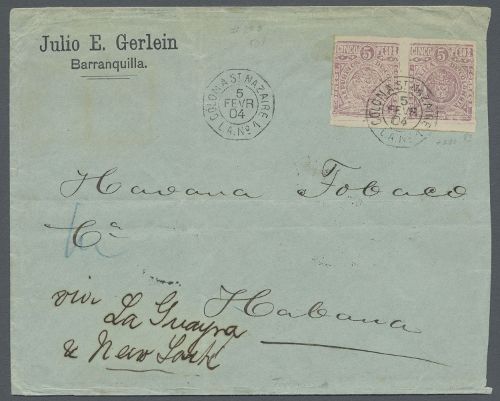 Julio E. Gerlein
Barranquilla.
COLON A ST NAZAIRE
5
FEVR
04
L.A. No 1
CINCO 5 PESOS
CINCO 5 PESOS
COLON A ST NAZAIRE
5
FEVR
04
L.A. No 1
Havana Tobaco
Ca
Habana
via
La Guayra
& New York